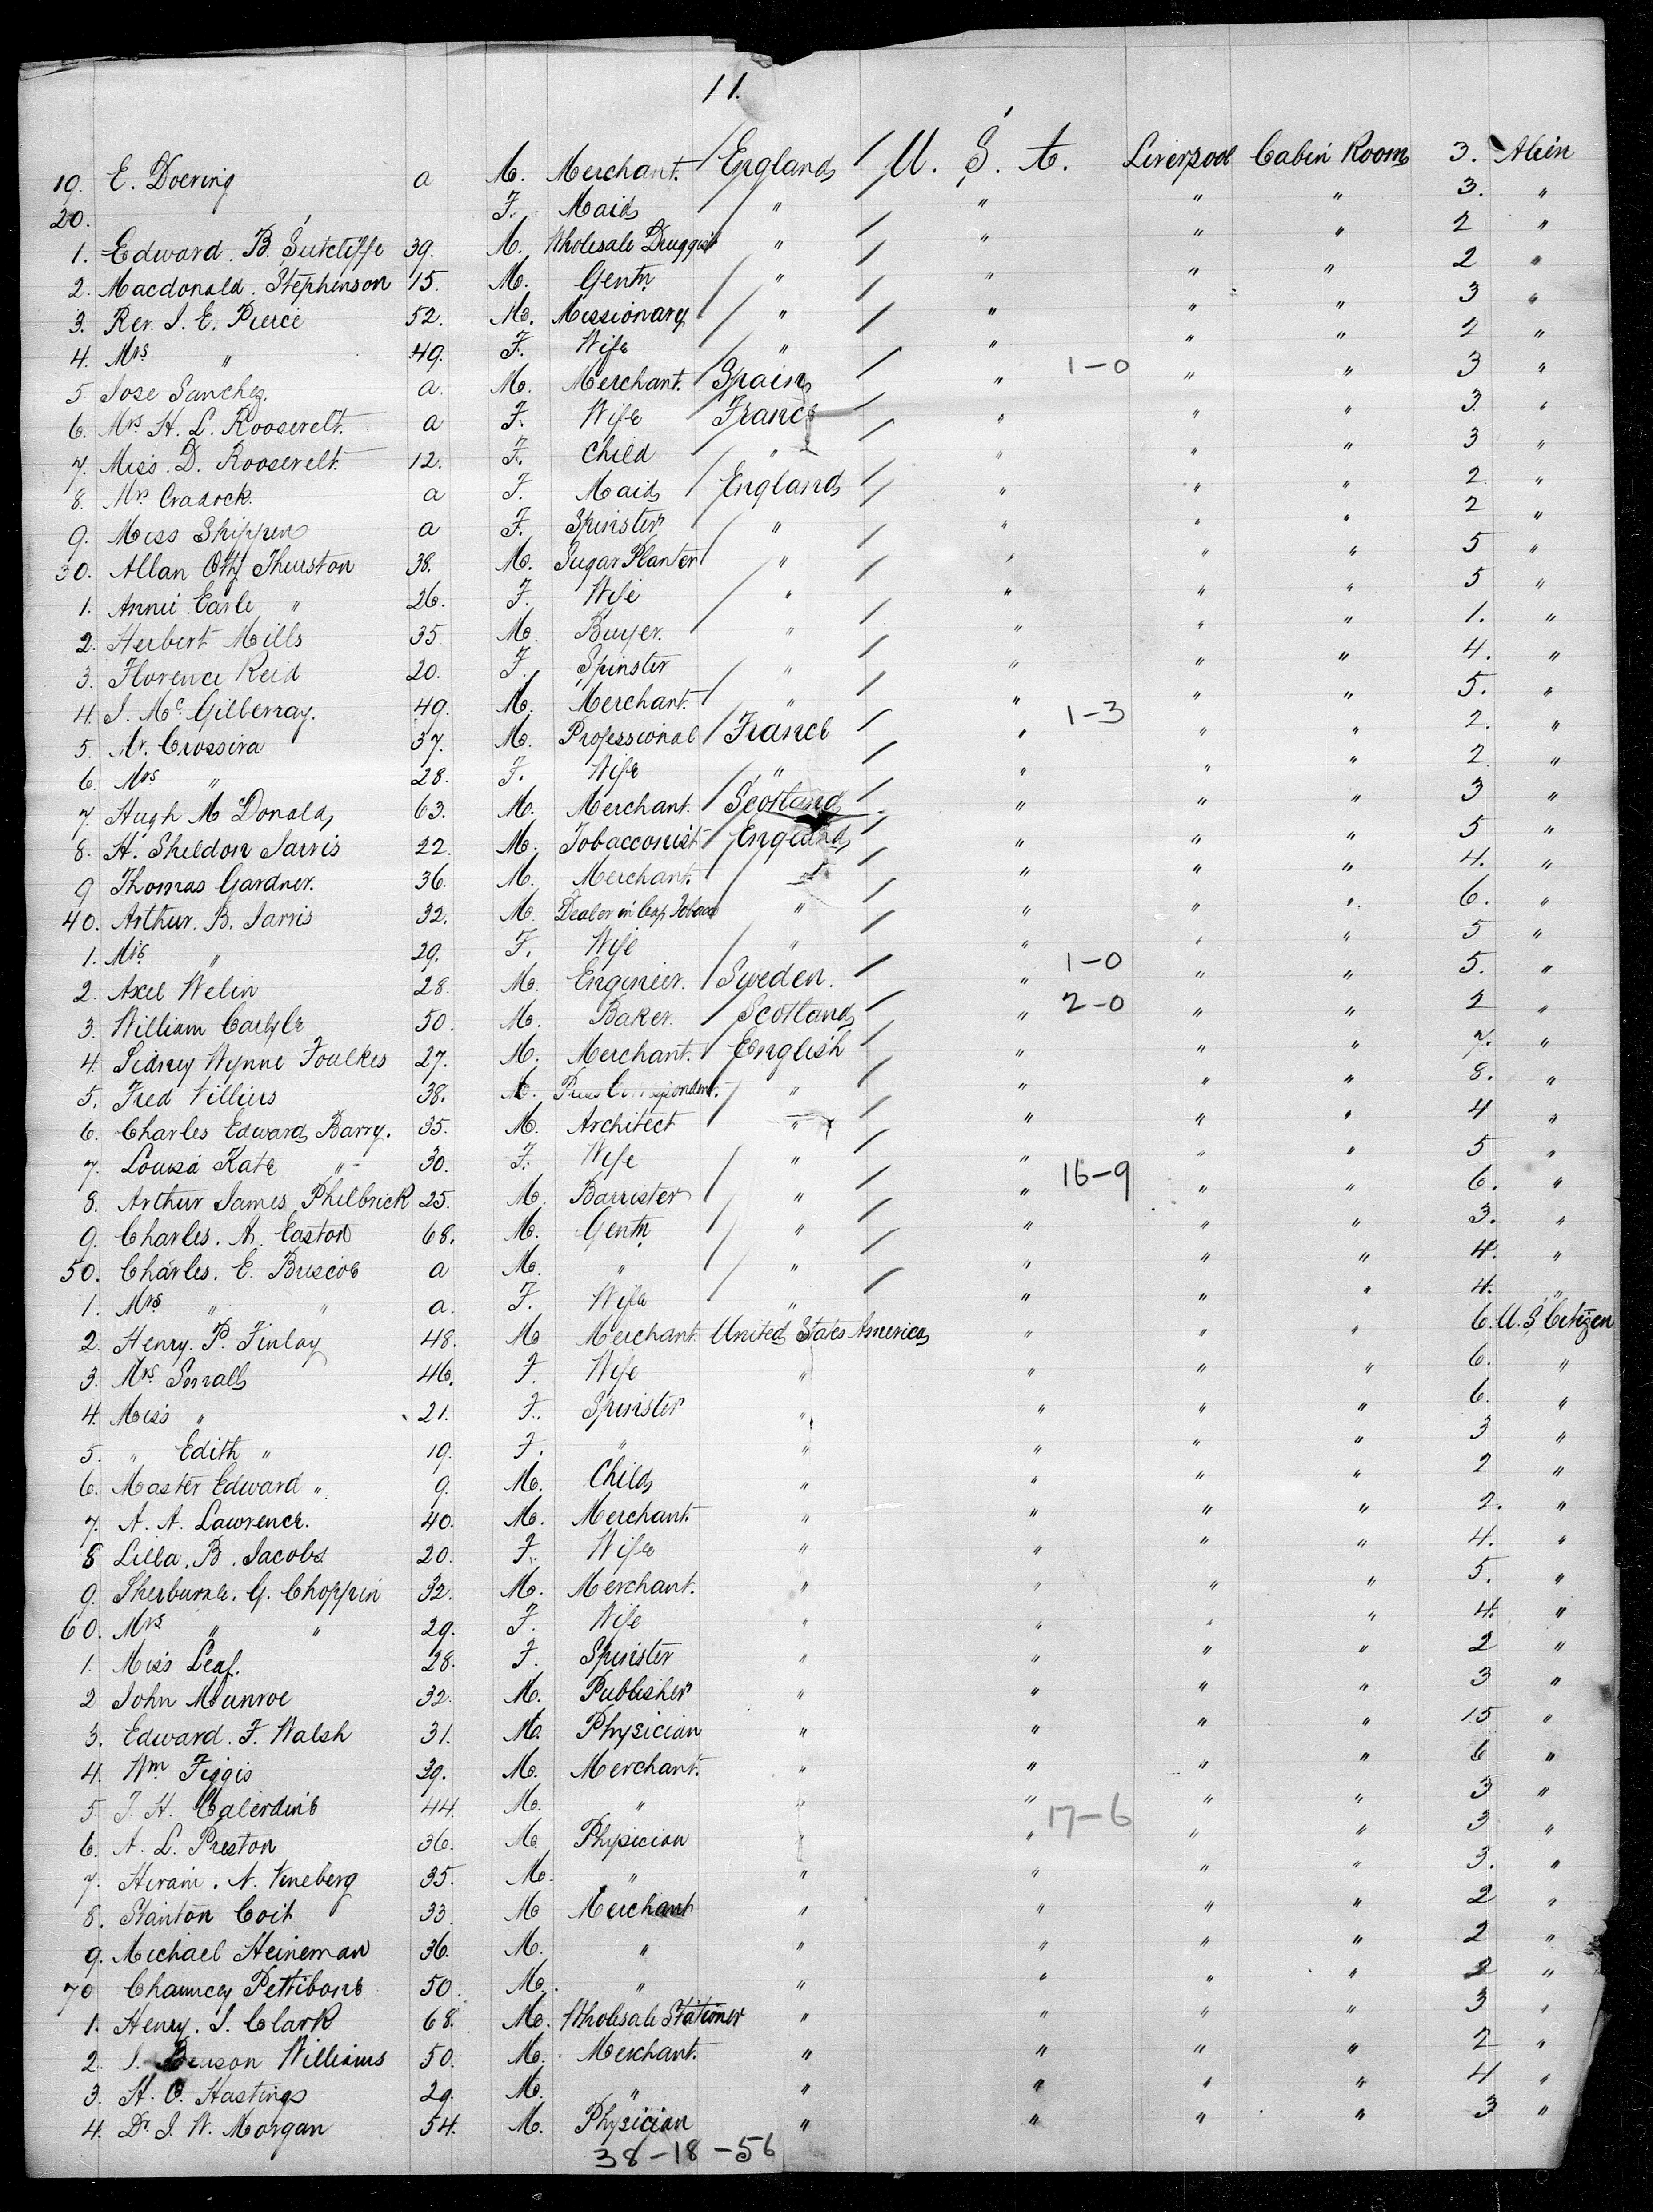 11.
19. E. Doering a M. Merchant. England U. S. A. Liverpool Cabin Room 3. Alien
20. F. Maid " " " " 3. "
1. Edward. B. Sutcliffe 39. M. Wholesale Druggist " " " " 2 "
2. Macdonald. Stephenson 15. M. Gentn " " " " 2 "
3. Rev. J. E. Pierce 52. M. Missionary " " " " 3 "
4. Mrs " 49. F. Wife " " " " 2 "
5. Jose Sanchez. a. M. Merchant. Spain " 1-0 " " 3 "
6. Mrs H. L. Roosevelt. a F. Wife France " " " 3. "
7. Miss. D. Roosevelt. 12. F. Child " " " " 3 "
8. Mrs Cradock. a F. Maid England " " " 2. "
9. Miss Shippen a F. Spinster " " " " 2 "
30. Allan Thurston 38. M. Sugar Planter " " " " 5 "
1. Annie Earle " 26. F. Wife " " " " 5 "
2. Herbert Mills 35 M. Buyer. " " " " 1. "
3. Florence Reid 20. F. Spinster " " " " 4. "
4. J. Mc Gilberray. 49. M. Merchant. " " " " 5. "
5. Mr. Crossira 37. M. Professional France " 1-3 " " 2. "
6. Mrs " 28. F. Wife " " " " 2. "
7. Hugh Mc Donald, 63. M. Merchant. Scotland " " " 3 "
8. H. Sheldon Jarvis 22. M. Tobacconist England " " " 5 "
9 Thomas Gardner. 36. M. Merchant. " " " " 4. "
40. Arthur. B. Jarvis 32. M. Dealer in Leaf Tobacco " " " " 6. "
1. Mrs. " 29. F. Wife " " " " 5 "
2. Axel Welin 28. M. Engineer. Sweden. " 1-0 " " 5. "
3. William Carlyle 50. M. Baker. Scotland " 2-0 " " 2 "
4. Sidney Wynne Foulkes 27. M. Merchant. English " " " 7. "
5. Fred Villiers 38. M. Press Correspondent. " " " " 8. "
6. Charles Edward Barry. 35. M. Architect " " " " 4 "
7. Louisa Kate " 30. F. Wife " " " " 5 "
8. Arthur James Philbrick 25. M. Barrister " " 16-9 " " 6. "
9. Charles. A. Easton 68. M. Gentn " " " " 3. "
50. Charles. E. Briscoe a M. " " " " " 4. "
1. Mrs " " a. F. Wife " " " " 4. "
2. Henry. P. Finlay 48. M. Merchant United States America " " " 6. U.S Citizen
3. Mrs Small 46. F. Wife " " " " 6. "
4. Miss " 21. F. Spinster " " " " 6. "
5. " Edith " 19. F. " " " " " 3 "
6. Master Edward " 9. M. Child " " " " 2 "
7. A. A. Lawrence. 40. M. Merchant. " " " " 2. "
8 Lilla. B. Jacobs 20. F. Wife " " " " 4. "
9. Sherburne. G. Choppin 32. M. Merchant. " " " " 5. "
60. Mrs " " 29. F. Wife " " " " 4. "
1. Miss Leaf. 28. F. Spinster " " " " 2 "
2 John Munroe 32. M. Publisher " " " " 3 "
3. Edward. F. Walsh 31. M. Physician " " " " 15 "
4. Wm Figgis 39. M. Merchant. " " " " 6 "
5. J. H. 44. M. " " " " " 3 "
6. A. L. Preston 36. M. Physician " " 17-6 " " 3 "
7. Hiram. N. Vineberg 35. M. " " " " " 3. "
8. Stanton Coit 33 M Merchant " " " " 2 "
9. Michael Heineman 36. M. " " " " " 2 "
70 Chauncey Pettibone 50. M. " " " " " 2 "
1. Henry. J. Clark 68. M. Wholesale Stationer " " " " 3 "
2. J. Benson Williams 50. M. Merchant. " " " " 2 "
3. H. O. Hastings 29. M. " " " " " 4 "
4. Dr J. W. Morgan 54. M. Physician " " " " 3 "
38-18-56